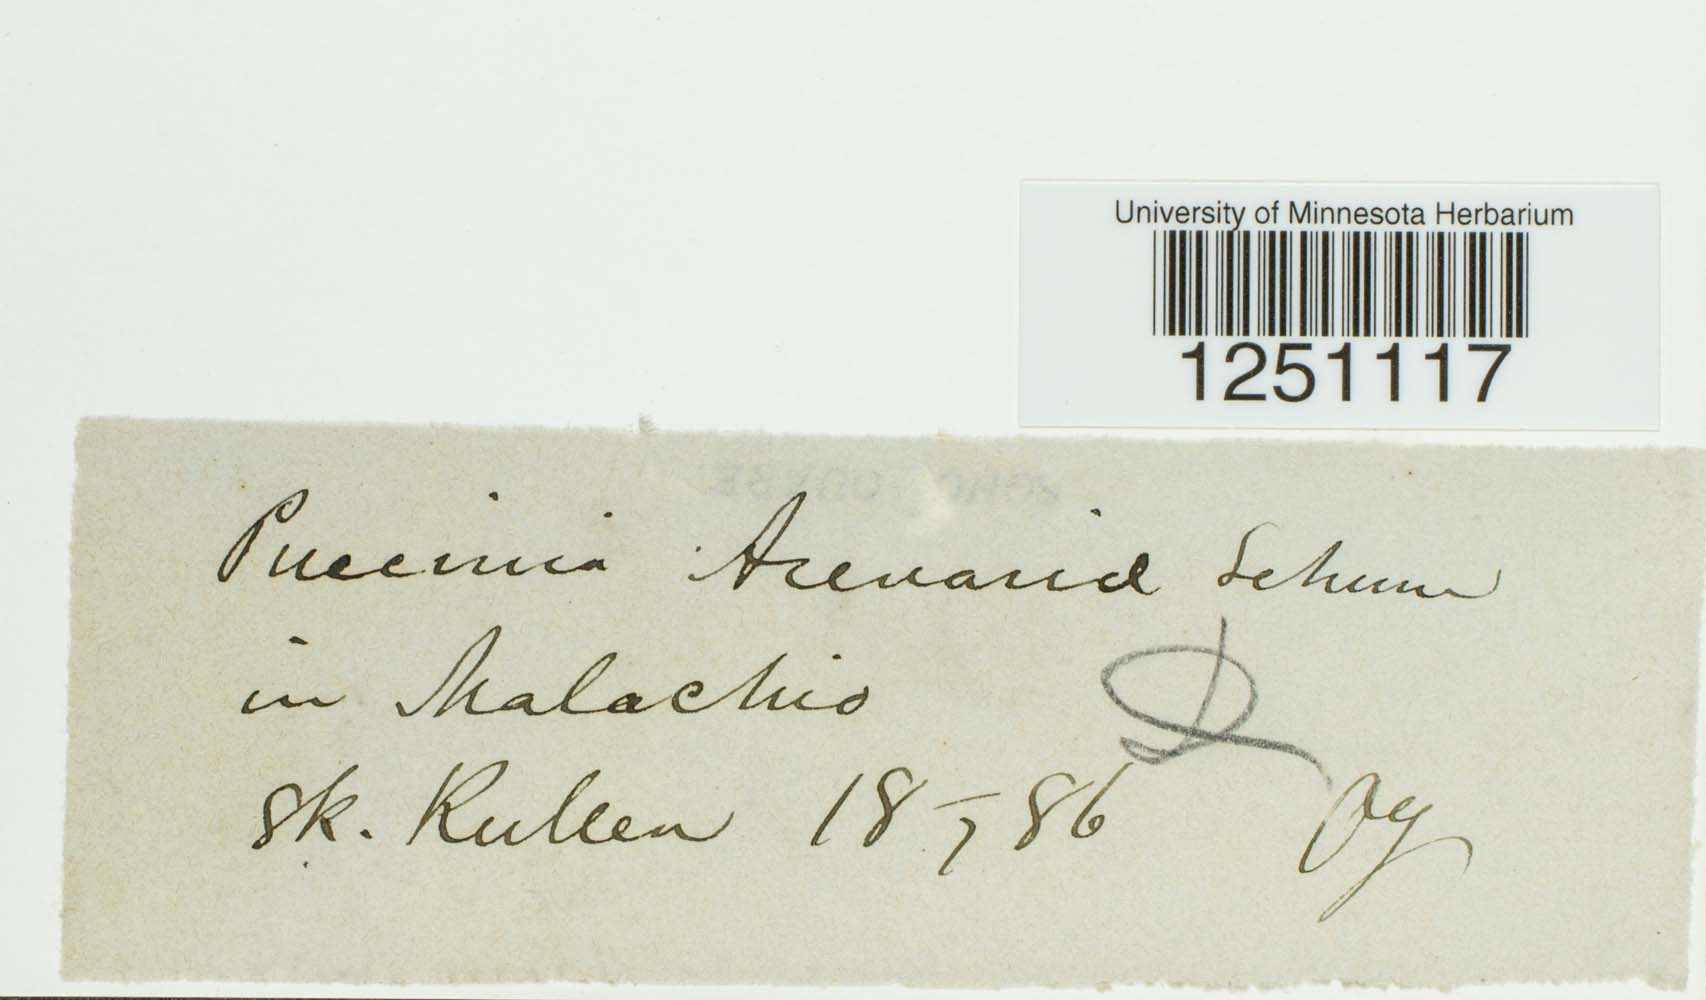 University of Minnesota Herbarium
1251117
Puccinia Arenariæ Schum
in Malachio
Sk. Kullen 18 7/ 86